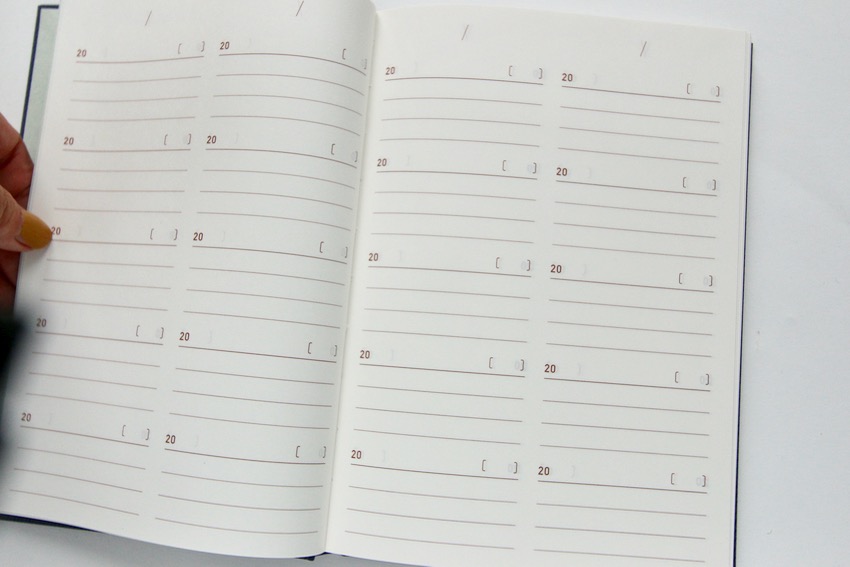 /
20 [ ]
20 [ ]
20 [ ]
20 [ ]
20 [ ]
/
20 [ ]
20 [ ]
20 [ ]
20 [ ]
20 [ ]
/
20 [ ]
20 [ ]
20 [ ]
20 [ ]
20 [ ]
/
20 [ ]
20 [ ]
20 [ ]
20 [ ]
20 [ ]